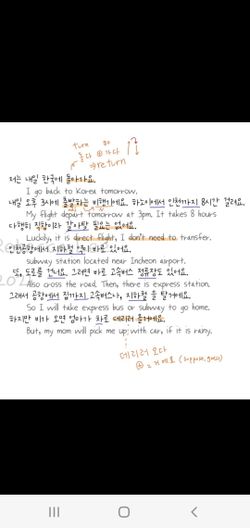 turn go
돌다 ⊕ 가다
⇒return
저는 내일 한국에 돌아가요.
I go back to Korea tomorrow.
내일 오후 3시에 출발하는 비행기예요. 하노이에서 인천까지 8시간 걸려요.
My flight depart tomorrow at 3pm. It takes 8 hours
다행히 직항이라 갈아탈 필요는 없어요.
Luckily, it is direct flight, I don't need to transfer.
인천공항에서 지하철 역이 바로 있어요.
subway station located near Incheon airport.
또, 도로를 건너요. 그러면 바로 고속버스 정류장도 있어요.
Also cross the road. Then, there is express station.
그래서 공항에서 집까지 고속버스나, 지하철을 탈거예요.
So I will take express bus or subway to go home.
하지만 비가 오면 엄마가 차로 데리러 올거예요.
But, my mom will pick me up with car, if it is rainy.
데리러 오다